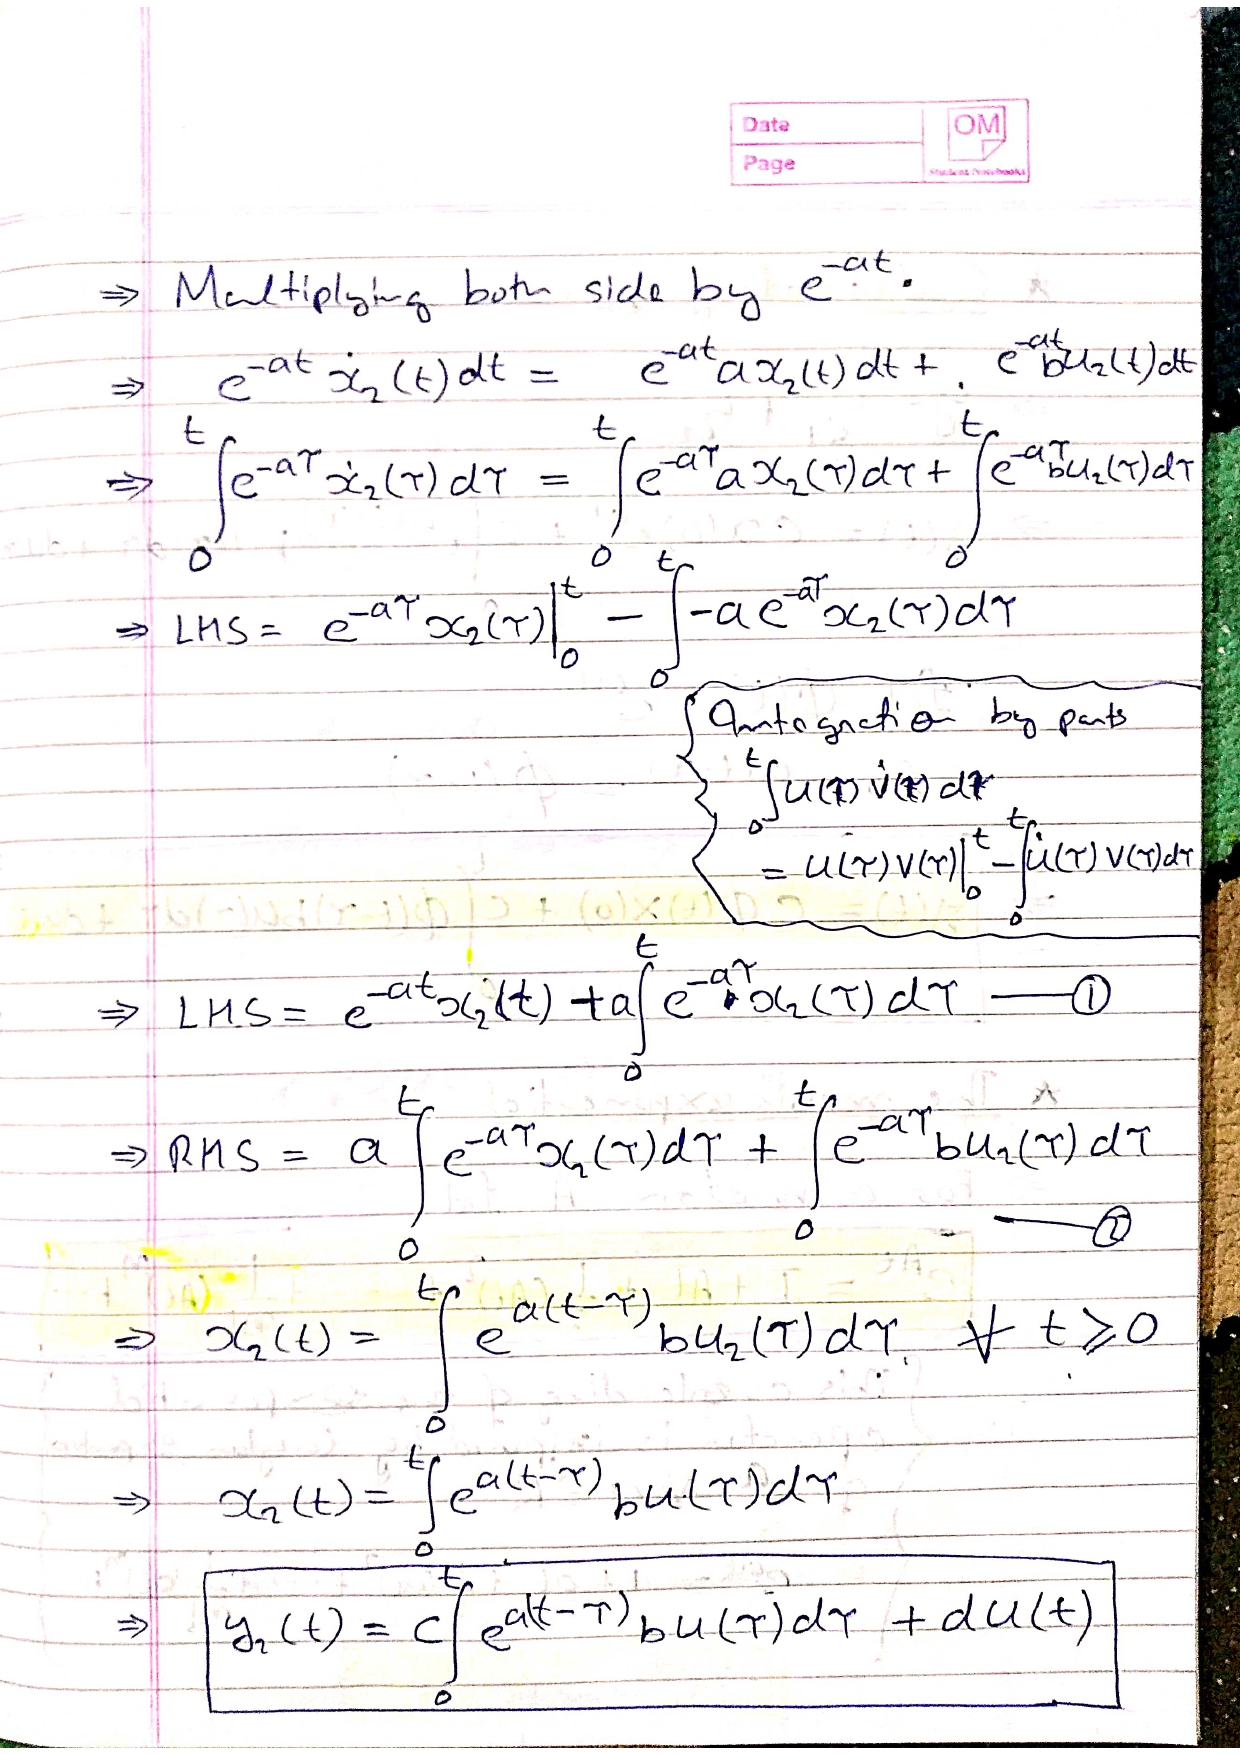 Date
OM
Page
Student Notebooks
⇒ Multiplying both side by e^{-at}.
⇒ e^{-at} ẋ₂(t)dt = e^{-at}ax₂(t)dt + e^{-at}bu₂(t)dt
⇒ ∫₀ᵗ e^{-aτ} ẋ₂(τ)dτ = ∫₀ᵗ e^{-aτ}ax₂(τ)dτ + ∫₀ᵗ e^{-aτ}bu₂(τ)dτ
⇒ LHS = e^{-aτ}x₂(τ)|₀ᵗ - ∫₀ᵗ -ae^{-aτ}x₂(τ)dτ
Integration by parts
∫₀ᵗ u(τ) v̇(τ) dτ
= u(τ)v(τ)|₀ᵗ - ∫₀ᵗ u̇(τ)v(τ)dτ
⇒ LHS = e^{-at}x₂(t) + a∫₀ᵗ e^{-aτ}x₂(τ)dτ — ①
⇒ RHS = a∫₀ᵗ e^{-aτ}x₂(τ)dτ + ∫₀ᵗ e^{-aτ}bu₂(τ)dτ
— ②
⇒ x₂(t) = ∫₀ᵗ e^{a(t-τ)}bu₂(τ)dτ ∀ t ⩾ 0
⇒ x₂(t) = ∫₀ᵗ e^{a(t-τ)}bu(τ)dτ
⇒ y₂(t) = c∫₀ᵗ e^{a(t-τ)}bu(τ)dτ + du(t)